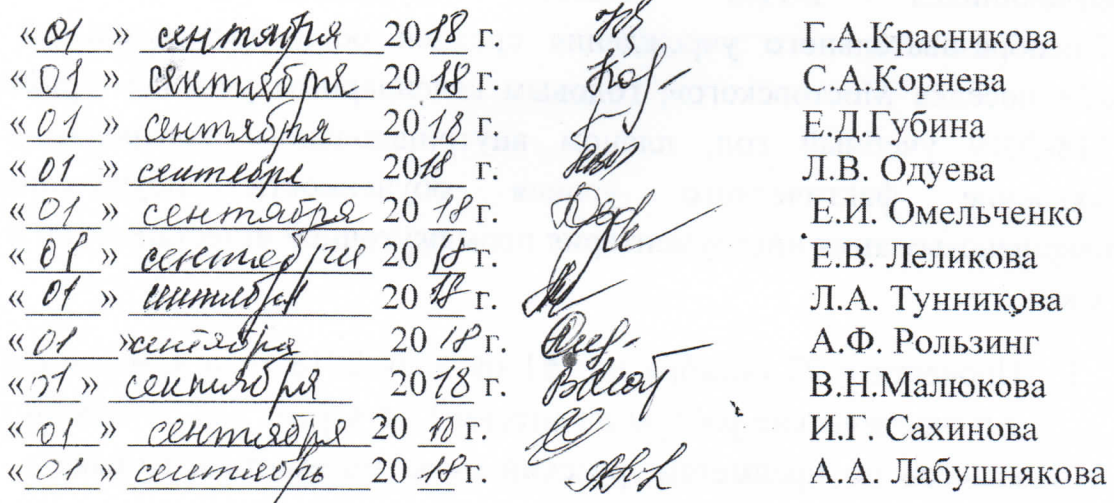 «01» сентября 2018 г. Г.А.Красникова
«01» сентября 2018 г. С.А.Корнева
«01» сентября 2018 г. Е.Д.Губина
«01» сентября 2018 г. Л.В. Одуева
«01» сентября 2018 г. Е.И. Омельченко
«01» сентября 2018 г. Е.В. Леликова
«01» сентября 2018 г. Л.А. Тунникова
«01» сентября 2018 г. А.Ф. Рользинг
«01» сентября 2018 г. В.Н.Малюкова
«01» сентября 2018 г. И.Г. Сахинова
«01» сентябрь 2018 г. А.А. Лабушнякова